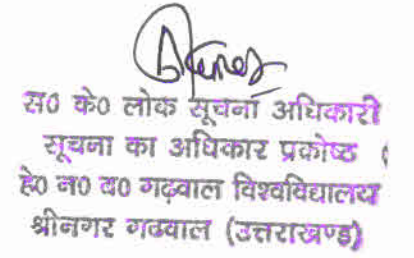 स0 के0 लोक सूचना अधिकारी
सूचना का अधिकार प्रकोष्ठ
हे0 न0 ब0 गढ़वाल विश्वविद्यालय
श्रीनगर गढवाल (उत्तराखण्ड)